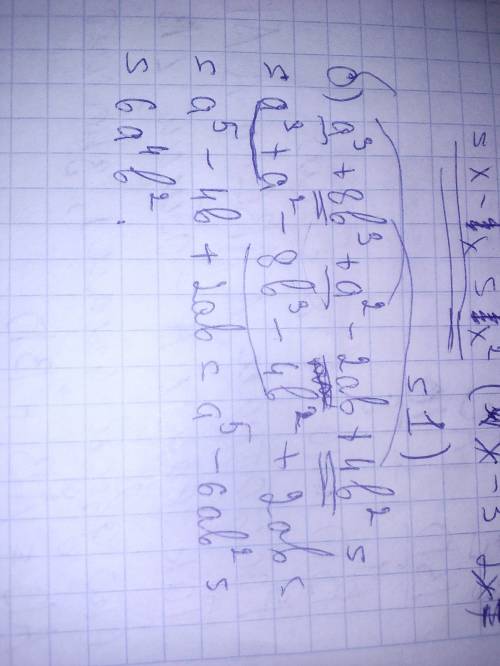 = x - x = x² (x - 3
= 1)
б) a³ + 8b³ + a² - 2ab + 4b² =
= a³ + a² - 8b³ - 4b² + 2ab =
= a⁵ - 4b + 2ab = a⁵ - 6ab² =
= 6a⁴b².